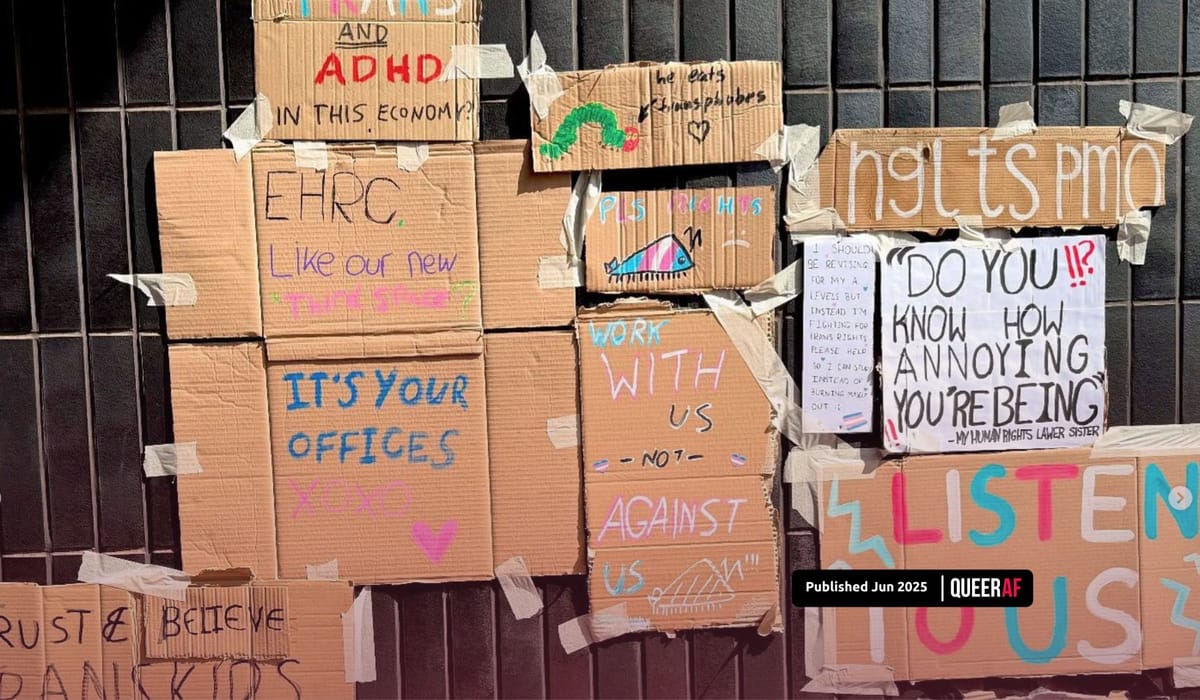 TRANS
AND
ADHD
IN THIS ECONOMY?
he eats
transphobes
EHRC.
Like our new
IT'S YOUR
OFFICES
XOXO
PLS RIGHTS
WORK
WITH
US
- NOT -
AGAINST
US
ngl ts pmo
I SHOULD
BE REVISING
FOR MY A
LEVELS BUT
INSTEAD I'M
FIGHTING FOR
TRANS RIGHTS
PLEASE HELP
SO I CAN
INSTEAD OF
BURNING
OUT
"DO YOU !!?
KNOW HOW
ANNOYING
YOU'RE BEING"
!!
- MY HUMAN RIGHTS LAWER SISTER
LISTEN
TO US
RUST & BELIEVE
RANS KIDS
Published Jun 2025 | QUEERAF